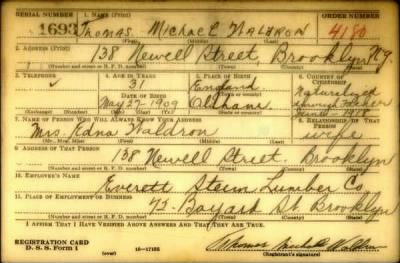 SERIAL NUMBER 1. NAME (Print) ORDER NUMBER
1693 Thomas Michael Waldron 4180
2. ADDRESS (Print)
138 Newell Street, Brooklyn N.Y.
(Number and street or R. F. D. number) (Town) (County) (State)
3. TELEPHONE 4. AGE IN YEARS 5. PLACE OF BIRTH 6. COUNTRY OF CITIZENSHIP
31 England Naturalized
DATE OF BIRTH through Father
May 27 1909 Oldham
(Exchange) (Number) (Mo.) (Day) (Yr.) (Town or county) (State or country)
7. NAME OF PERSON WHO WILL ALWAYS KNOW YOUR ADDRESS 8. RELATIONSHIP OF THAT PERSON
Mrs. Edna Waldron wife
(Mr., Mrs., Miss) (First) (Middle) (Last)
9. ADDRESS OF THAT PERSON
138 Newell Street. Brooklyn
(Number and street or R. F. D. number) (Town) (County) (State)
10. EMPLOYER'S NAME
Everett Lumber Co
11. PLACE OF EMPLOYMENT OR BUSINESS
72 Bayard St Brooklyn
(Number and street or R. F. D. number) (Town) (County) (State)
I AFFIRM THAT I HAVE VERIFIED ABOVE ANSWERS AND THAT THEY ARE TRUE.
REGISTRATION CARD
D. S. S. Form 1 (over) 16—17105 Thomas Michael Waldron
(Registrant's signature)